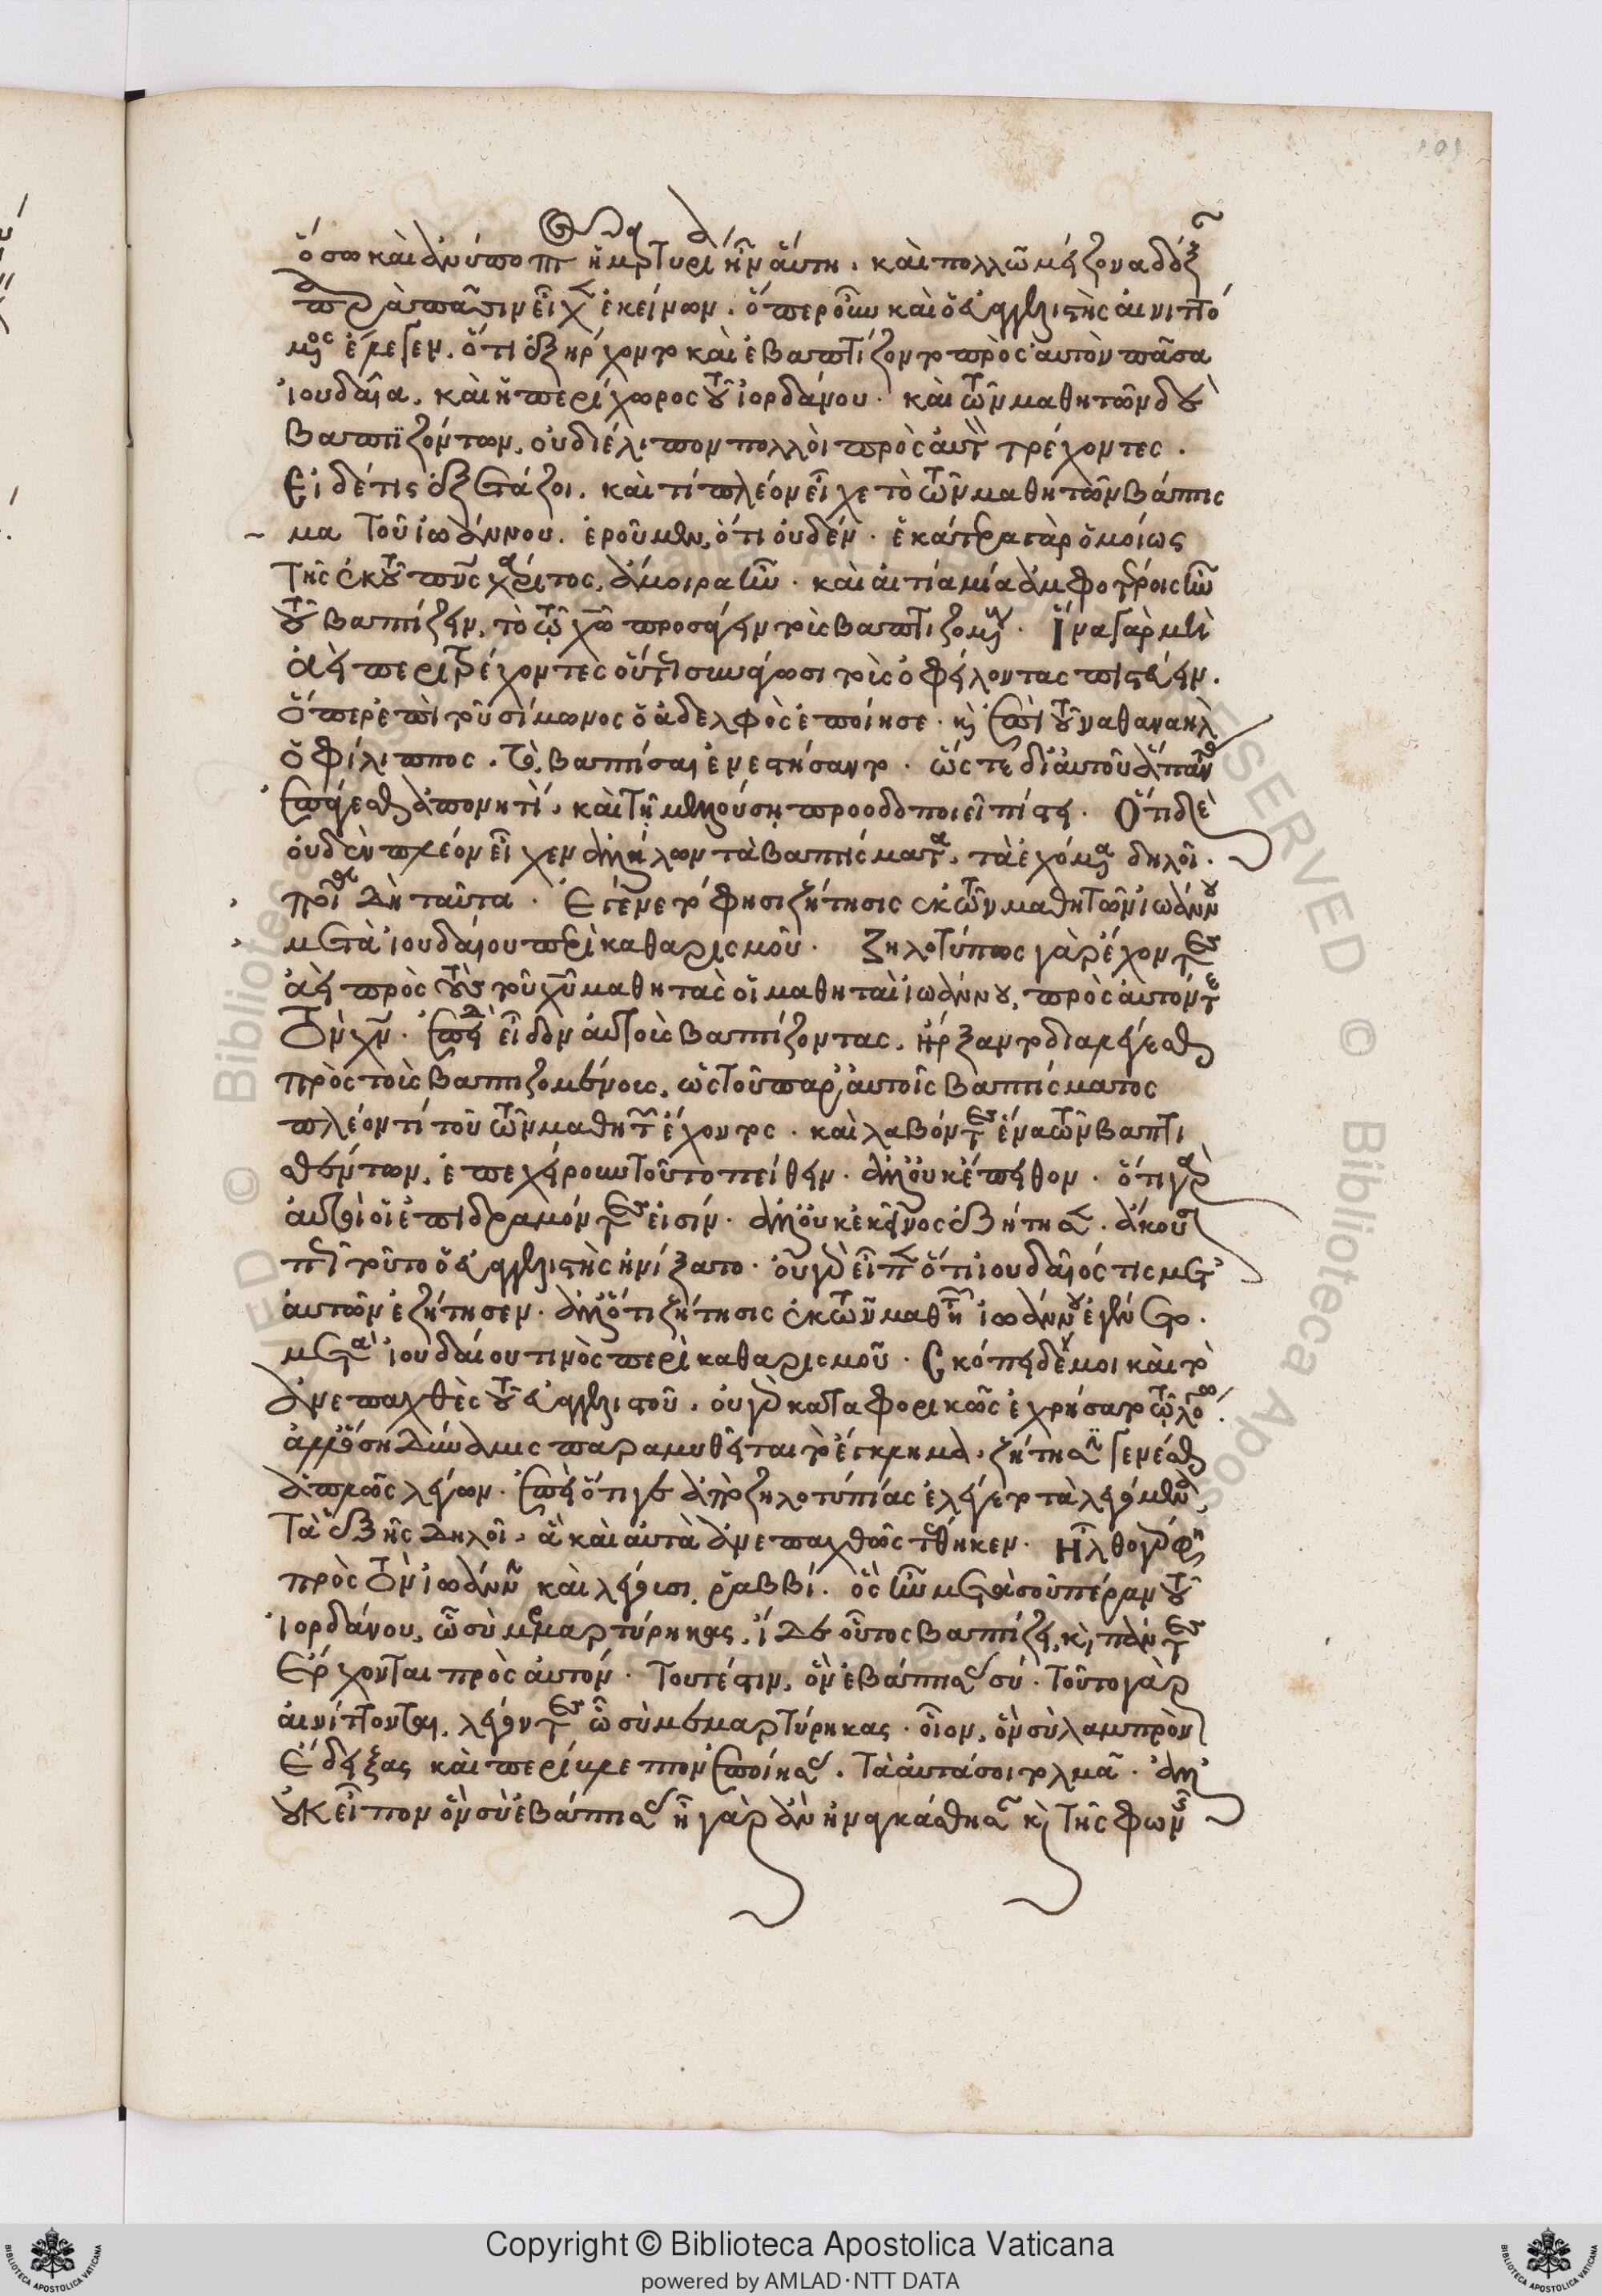 101
ὅσω καὶ ἀνύποπτος ἡ μαρτυρία ἦν αὕτη. καὶ πολλῷ μείζονα δόξαν
παρὰ πᾶσιν εἶχεν ἐκείνων. ὅπερ οὖν καὶ ὁ εὐαγγελιστὴς αἰνιττό
μενος ἔλεγεν. ὅτι ἐξήρχοντο καὶ ἐβαπτίζοντο πρὸς αὐτὸν πᾶσα
ἰουδαία. καὶ ἡ περίχωρος τοῦ ἰορδάνου. καὶ τῶν μαθητῶν δὲ
βαπτιζόντων, οὐ διέλιπον πολλοὶ πρὸς αὐτὸν τρέχοντες.
Εἰ δέ τις ἐξετάζοι. καὶ τί πλέον εἶχε τὸ τῶν μαθητῶν βάπτισ
μα τοῦ ἰωάννου. ἐροῦμεν, ὅτι οὐδέν. ἑκάτερα γὰρ ὁμοίως
τῆς ἐκ τοῦ πνς χάριτος, ἄμοιρα ἦν. καὶ αἰτία μία ἀμφοτέροις ἦν
τοῦ βαπτίζειν, τὸ τῷ χῶ προσάγειν τοὺς βαπτιζομένους. ἵνα γὰρ μὴ
ἀεὶ περιτρέχοντες οὕτω συνάγωσι τοὺς ὀφείλοντας πιστεύειν.
ὅπερ ἐπὶ τοῦ σίμωνος ὁ ἀδελφὸς ἐποίησε. καὶ ἐπὶ τοῦ ναθαναὴλ
ὁ φίλιππος. τὸ βαπτίσαι ἐνεστήσαντο. ὥστε δι αὐτοῦ ἅπαντας
ἐπάγεσθαι ἀπονητί. καὶ τῇ μελλούσῃ προοδοποιεῖ πίστει. Ὅτι δὲ
οὐδὲν πλέον εἶχεν ἀλλήλων τὰ βαπτίσματα, τὰ ἐχόμενα δηλοῖ.
ποῖα δὴ ταῦτα. Ἐγένετό φησι ζήτησις ἐκ τῶν μαθητῶν ἰωάννου
μετὰ ἰουδαίου περὶ καθαρισμοῦ. Ζηλοτύπως γὰρ ἔχοντες
ἀεὶ πρὸς τοὺς τοῦ χῦ μαθητὰς οἱ μαθηταὶ ἰωάννου, πρὸς αὐτόν τε
τὸν χν. ἐπειδὴ εἶδον αὐτοὺς βαπτίζοντας. ἤρξαντο διαλέγεσθαι
πρὸς τοὺς βαπτιζομένους, ὡς τοῦ παρ' αὐτοῖς βαπτίσματος
πλέον τί τοῦ τῶν μαθητῶν ἔχοντος. καὶ λαβόντες ἕνα τῶν βαπτι
σθέντων, ἐπεχείρουν τοῦτο πείθειν. ἀλλ' οὐκ ἔπειθον. ὅτι γὰρ
αὐτοὶ οἱ ἐπιδραμόντες εἰσίν. ἀλλ' οὐκ ἐκεῖνος ἐζήτησεν. ἄκουσον
πῶς τοῦτο ὁ εὐαγγελιστὴς ἠνίξατο. οὐ γὰρ εἶπεν ὅτι ἰουδαῖός τις μετ'
αὐτῶν ἐζήτησεν. ἀλλ' ὅτι ζήτησις ἐκ τῶν μαθητῶν ἰωάννου ἐγένετο.
μετὰ ἰουδαίου τινὸς περὶ καθαρισμοῦ. Σκόπει δέ μοι καὶ τὸ
ἀνεπαχθὲς τοῦ εὐαγγελιστοῦ. οὐ γὰρ καταφορικῶς ἐχρήσατο τῷ λόγῳ.
ἀλλ' ὅση δύναμις παραμυθεῖται τὸ ἔγκλημα, ζήτησιν γενέσθαι
ἁπλῶς λέγων. ἐπεὶ ὅτι γε ἀπὸ ζηλοτυπίας ἐλέγετο τὰ λεγόμενα,
τὰ ἑξῆς δηλοῖ. ἃ καὶ αὐτὰ ἀνεπαχθῶς τέθηκεν. Ἦλθον γὰρ φησι
πρὸς τὸν ἰωάννην καὶ λέγουσι, ῥαββί. ὃς ἦν μετὰ σοῦ πέραν τοῦ
ἰορδάνου, ᾧ σὺ μεμαρτύρηκας, ἴδε οὗτος βαπτίζει, καὶ πάντες
ἔρχονται πρὸς αὐτόν. Τουτέστιν, ὃν ἐβάπτισας σύ. τοῦτο γὰρ
αἰνίττονται, λέγοντες ᾧ σὺ μεμαρτύρηκας. οἷον, ὃν σὺ λαμπρὸν
ἔδειξας καὶ περίβλεπτον ἐποίησας. τὰ αὐτά σοι τολμᾷ. ἀλλ'
οὐκ εἶπον ὃν σὺ ἐβάπτισας ἦ γὰρ ἂν ἠναγκάσθησαν καὶ τῆς φωνῆς